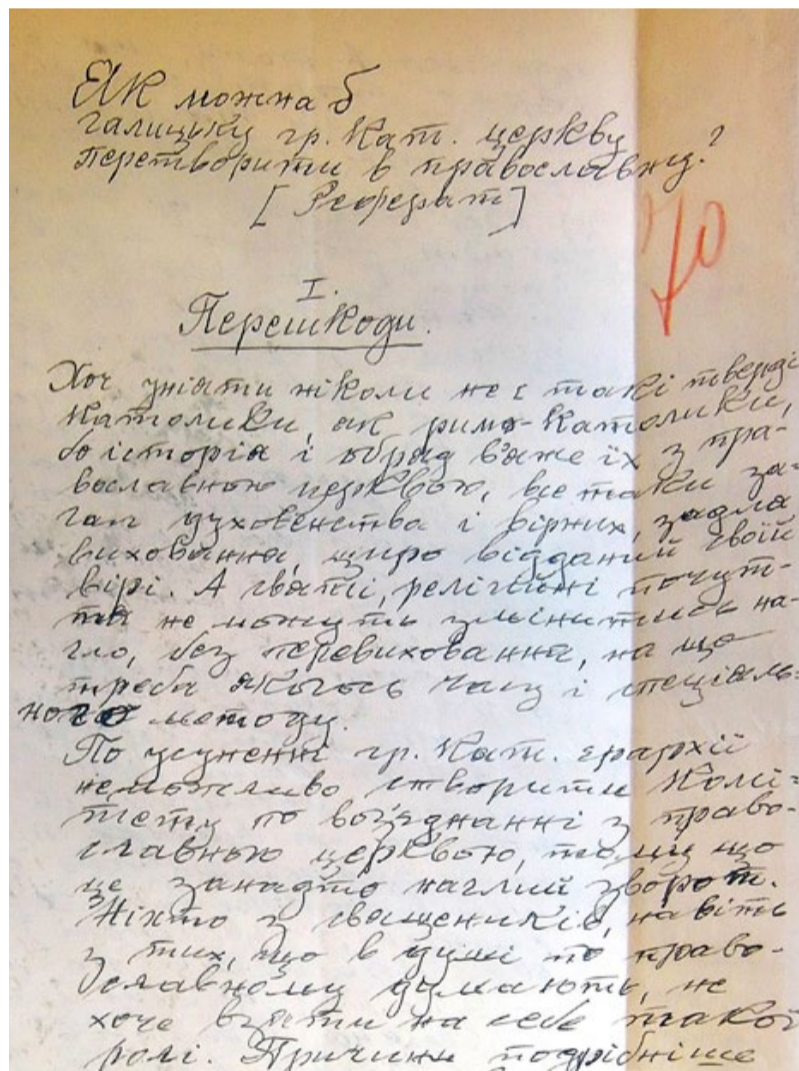 Як можна б
галицьку гр. кат. церкву
перетворити в православну?
[Реферат]
70
I.
Перешкоди.
Хоч уніяти ніколи не є такі тверді
католики, як римо-католики,
бо історія і обряд в'яже їх з пра-
вославною церквою, все таки за-
гал духовенства і вірних, задля
виховання, щиро відданий своїй
вірі. А святі, релігійні почут-
тя не можуть змінитись на-
гло, без перевиховання, на що
треба якогось часу і спеціаль-
ного методу.
По усуненні гр. кат. єрархії
неможливо створити Комі-
тету по возз'єднанні з право-
славною церквою, тому що
це занадто наглий зворот.
Ніхто з священиків, навіть
з тих, що в душі по право-
славному думають, не
хоче взяти на себе такої
ролі. Причини подрібніше